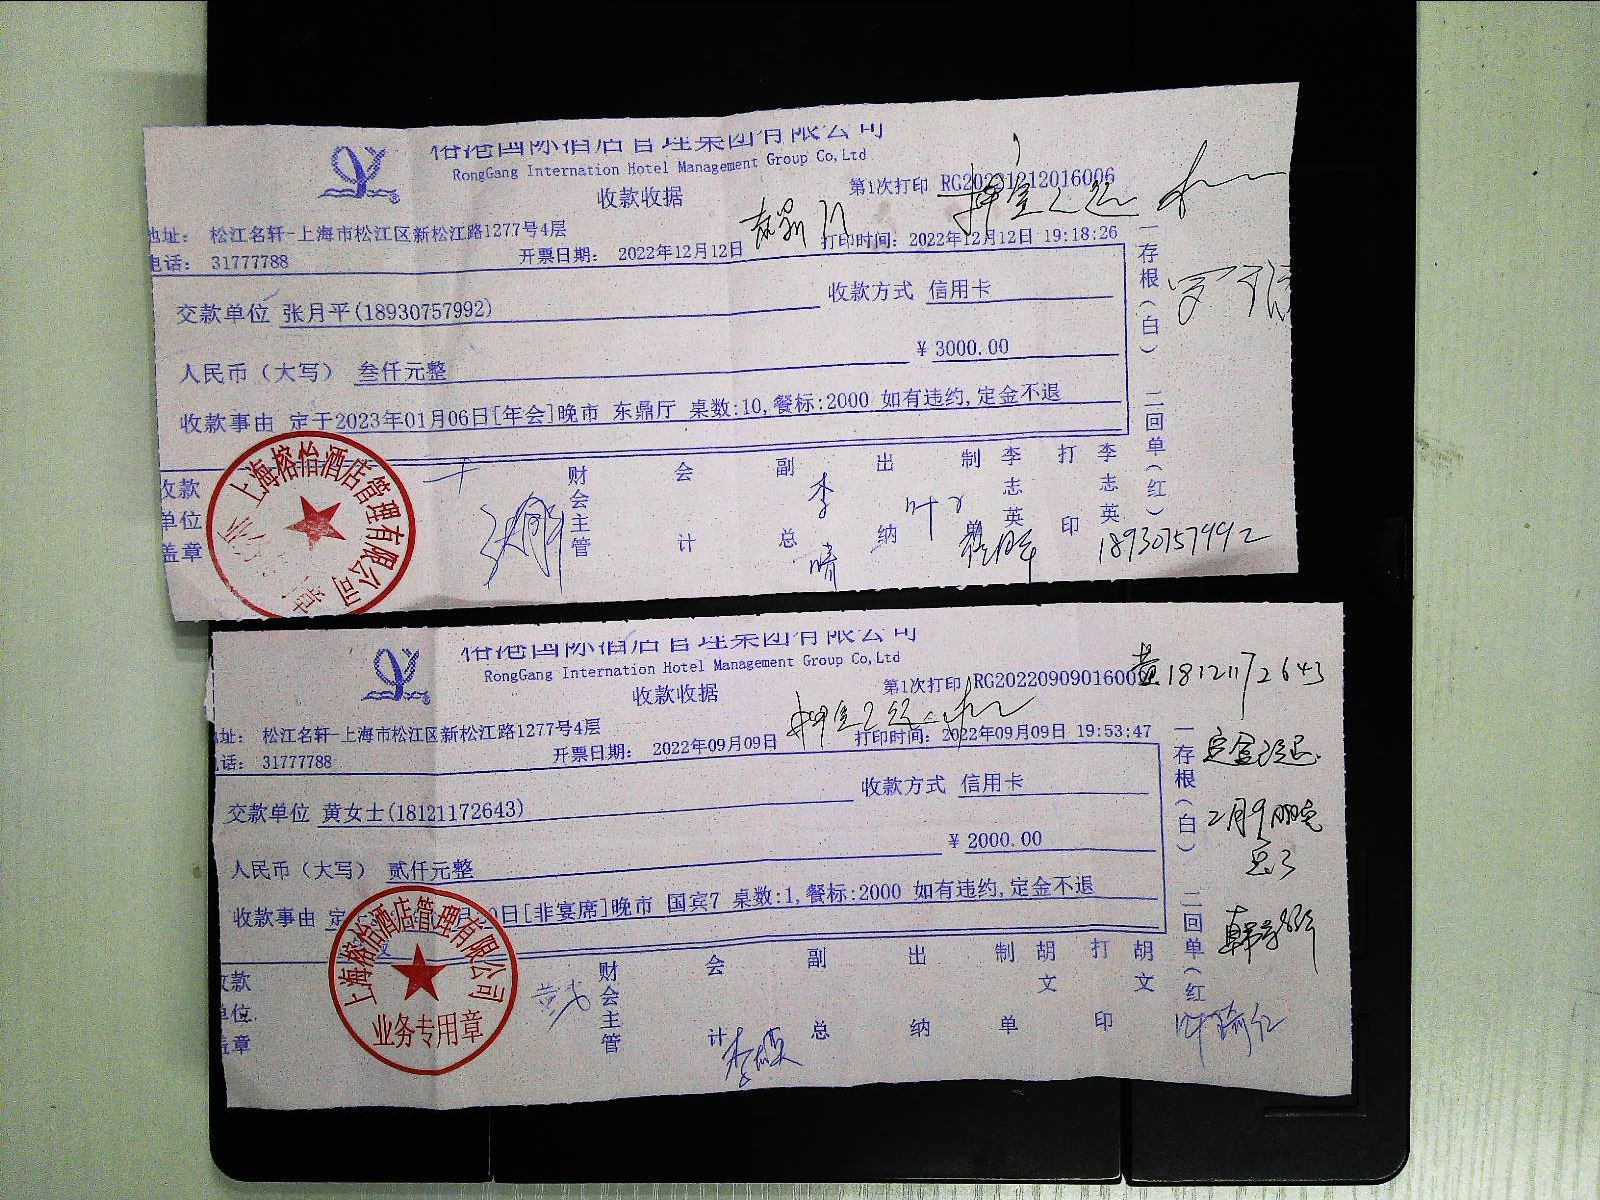 榕港国际酒店管理集团有限公司
RongGang Internation Hotel Management Group Co,Ltd
收款收据
第1次打印 RG20221212016006
地址： 松江名轩-上海市松江区新松江路1277号4层
电话： 31777788
开票日期： 2022年12月12日
打印时间：2022年12月12日 19:18:26
交款单位 张月平(18930757992)
收款方式 信用卡
人民币（大写） 叁仟元整
￥3000.00
收款事由 定于2023年01月06日[年会]晚市 东鼎厅 桌数:10,餐标:2000 如有违约,定金不退
收款单位盖章
财会主管
会计
副总
李晴
出纳
叶
制 李志英
打印 李志英
18930757992
一存根（白） 二回单（红）
上海榕怡酒店管理有限公司
榕港国际酒店管理集团有限公司
RongGang Internation Hotel Management Group Co,Ltd
收款收据
第1次打印 RG2022090901600
黄18121172643
地址： 松江名轩-上海市松江区新松江路1277号4层
电话： 31777788
开票日期： 2022年09月09日
打印时间：2022年09月09日 19:53:47
定金已退
交款单位 黄女士(18121172643)
收款方式 信用卡
人民币（大写） 贰仟元整
￥2000.00
收款事由 定 0日[非宴席]晚市 国宾7 桌数:1,餐标:2000 如有违约,定金不退
收款单位盖章
财会主管
会计
副总
出纳
制单 胡文
打印 胡文
一存根（白） 二回单（红
上海榕怡酒店管理有限公司
业务专用章